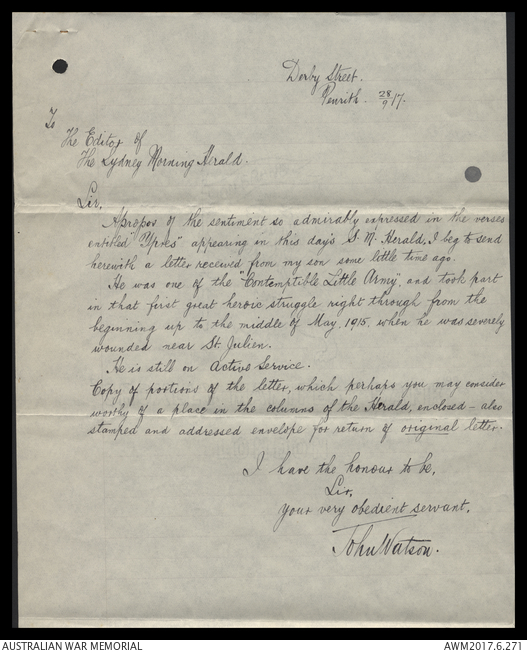 Derby Street.
Penrith. 28/9/17.
To
The Editor of
The Sydney Morning Herald.
Sir,
Apropos of the sentiment so admirably expressed in the verses
entitled "Ypres" appearing in this days S. M. Herald, I beg to send
herewith a letter received from my son some little time ago.
He was one of the "Contemptible Little Army", and took part
in that first great heroic struggle right through from the
beginning up to the middle of May, 1915, when he was severely
wounded near St. Julien.
He is still on Active Service.
Copy of portions of the letter, which perhaps you may consider
worthy of a place in the columns of the Herald, enclosed - also
stamped and addressed envelope for return of original letter.
I have the honour to be,
Sir,
your very obedient servant,
John Watson.
AUSTRALIAN WAR MEMORIAL
AWM2017.6.271